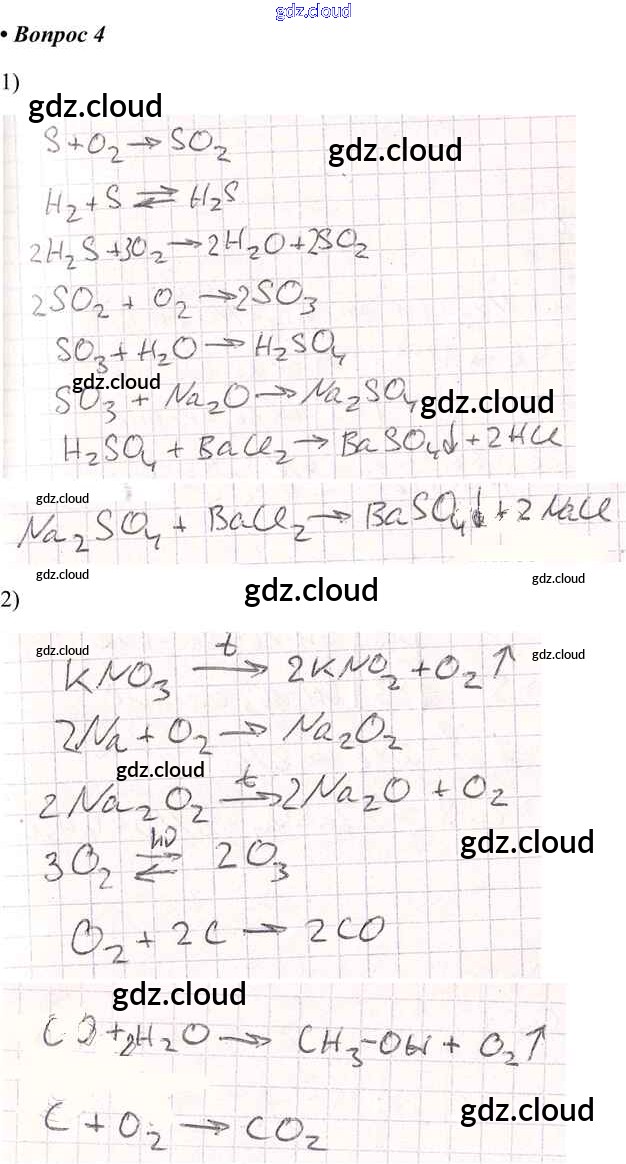 gdz.cloud
• Вопрос 4
1)
gdz.cloud
S + O₂ → SO₂
gdz.cloud
H₂ + S ⇄ H₂S
2H₂S + 3O₂ → 2H₂O + 2SO₂
2SO₂ + O₂ → 2SO₃
SO₃ + H₂O → H₂SO₄
gdz.cloud
SO₃ + Na₂O → Na₂SO₄
gdz.cloud
H₂SO₄ + BaCl₂ → BaSO₄↓ + 2HCl
gdz.cloud
Na₂SO₄ + BaCl₂ → BaSO₄↓ + 2NaCl
gdz.cloud
gdz.cloud
gdz.cloud
2)
gdz.cloud
gdz.cloud
KNO₃ →t 2KNO₂ + O₂↑
2Na + O₂ → Na₂O₂
gdz.cloud
2Na₂O₂ →t 2Na₂O + O₂
gdz.cloud
3O₂ ⇄hν 2O₃
O₂ + 2C → 2CO
gdz.cloud
CO + 2H₂O → CH₃-OH + O₂↑
gdz.cloud
C + O₂ → CO₂